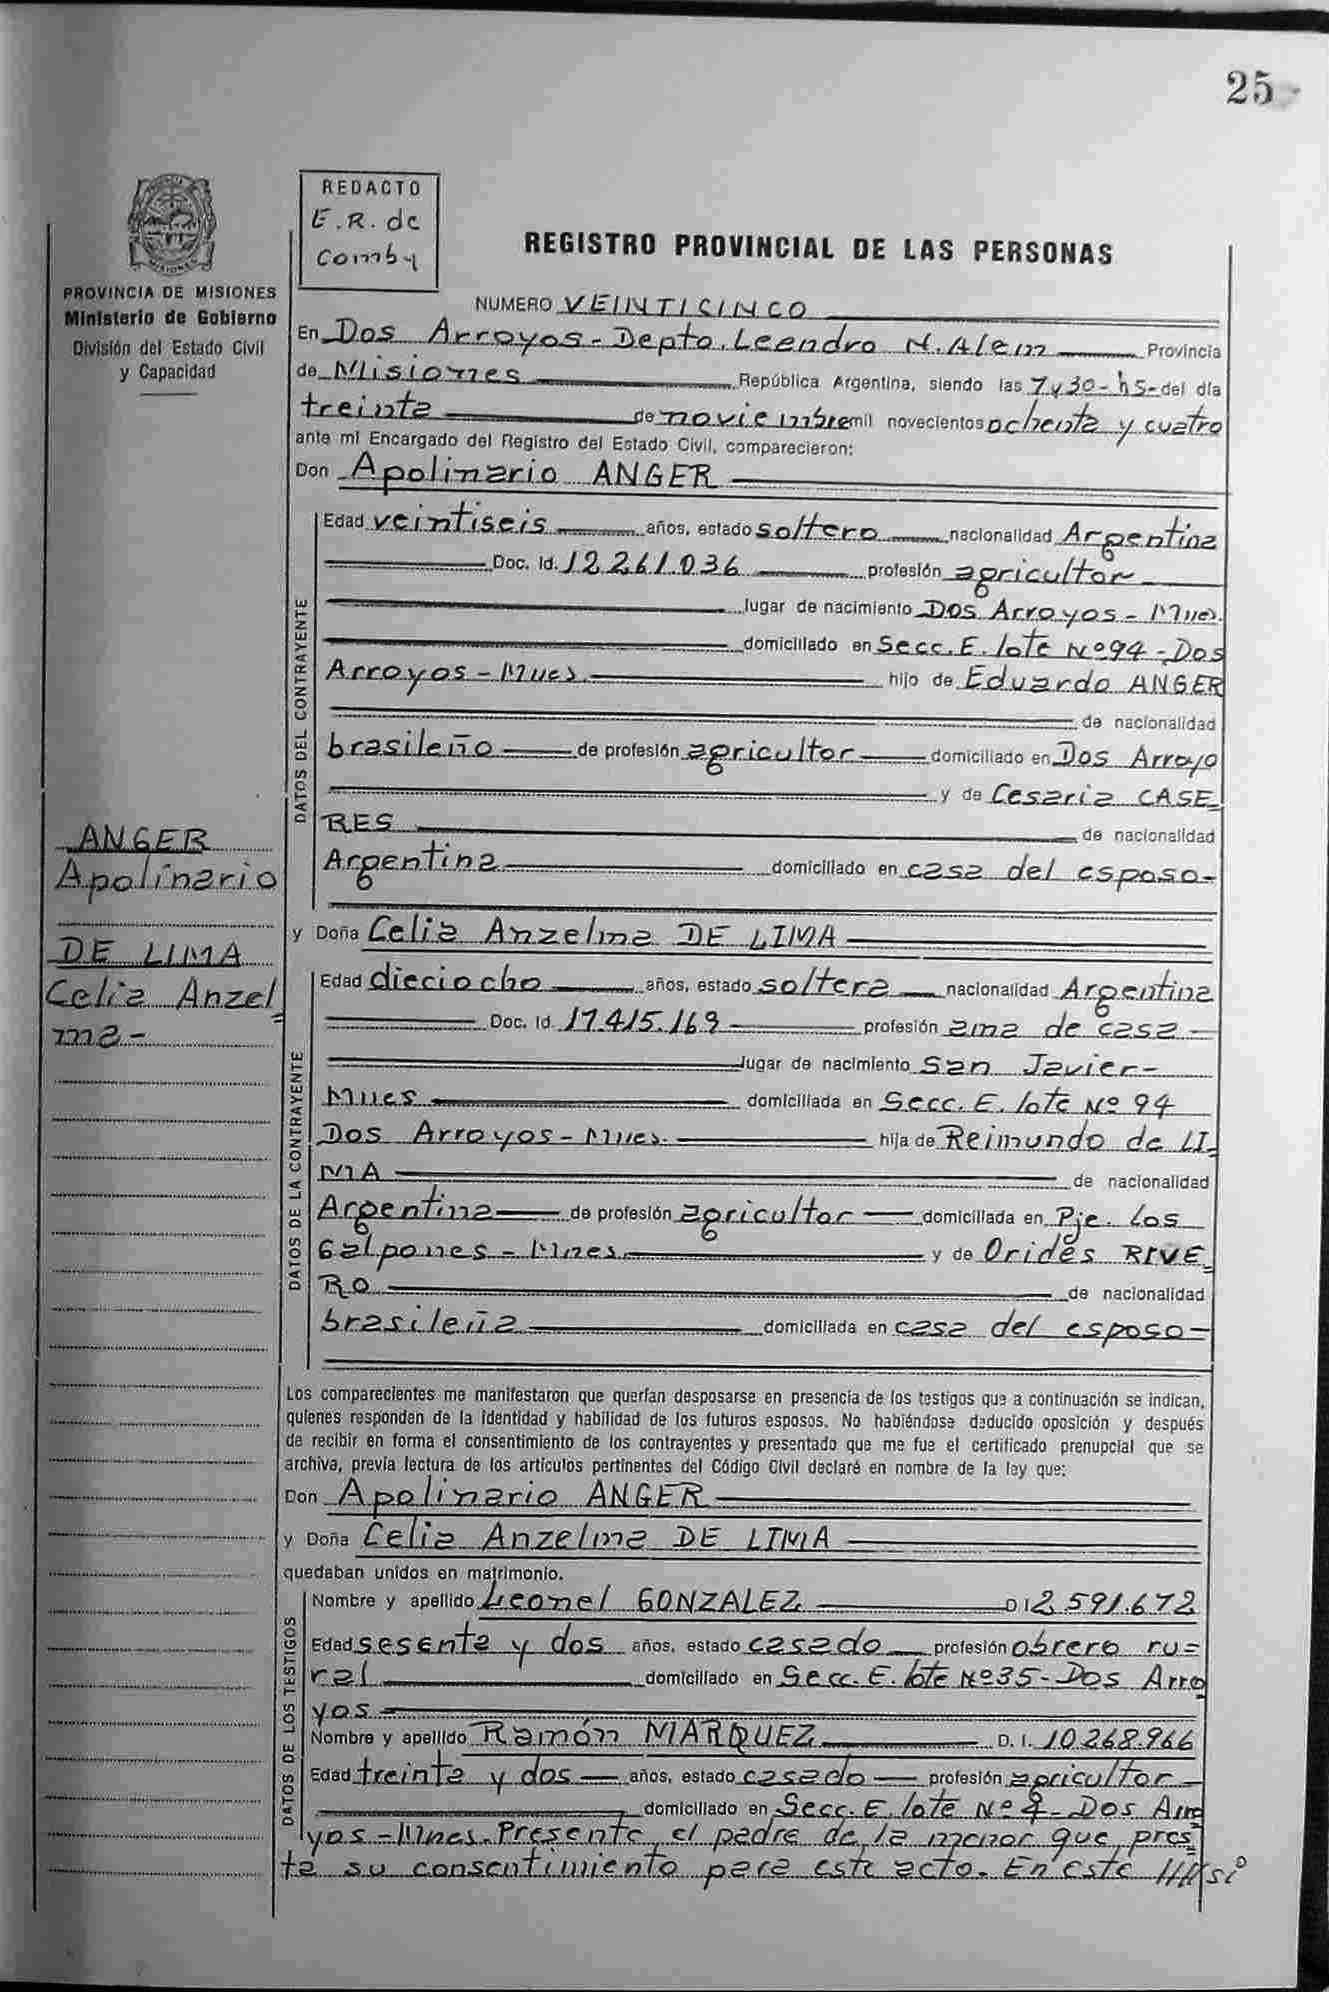 25
REDACTO
E.R. de
Comby
REGISTRO PROVINCIAL DE LAS PERSONAS
PROVINCIA DE MISIONES
Ministerio de Gobierno
División del Estado Civil
y Capacidad
NUMERO VEINTICINCO
En Dos Arroyos - Depto. Leandro N. Alem Provincia
de Misiones República Argentina, siendo las 7 y 30 - hs - del día
treinta de noviembre mil novecientos ochenta y cuatro
ante mi Encargado del Registro del Estado Civil, comparecieron:
Don Apolinario ANGER
DATOS DEL CONTRAYENTE
Edad veintiseis años, estado soltero nacionalidad Argentina
Doc. Id. 12.261.036 profesión agricultor
lugar de nacimiento Dos Arroyos - Mnes.
domiciliado en Secc. E. lote Nº 94 - Dos
Arroyos - Mnes. hijo de Eduardo ANGER
de nacionalidad
brasileño de profesión agricultor domiciliado en Dos Arroyo
y de Cesaria CASE_
RES de nacionalidad
Argentina domiciliado en casa del esposo -
ANGER
Apolinario
DE LIMA
Celia Anzel_
ma -
y Doña Celia Anzelma DE LIMA
DATOS DE LA CONTRAYENTE
Edad dieciocho años, estado soltera nacionalidad Argentina
Doc. Id. 17.415.169 profesión ama de casa -
lugar de nacimiento San Javier -
Mnes domiciliada en Secc. E. lote Nº 94
Dos Arroyos - Mnes. hija de Reimundo de LI_
MA de nacionalidad
Argentina de profesión agricultor domiciliada en Pje. Los
Galpones - Mnes y de Orides RIVE_
RO de nacionalidad
brasileña domiciliada en casa del esposo -
Los comparecientes me manifestaron que querían desposarse en presencia de los testigos que a continuación se indican,
quienes responden de la identidad y habilidad de los futuros esposos. No habiéndose deducido oposición y después
de recibir en forma el consentimiento de los contrayentes y presentado que me fue el certificado prenupcial que se
archiva, previa lectura de los artículos pertinentes del Código Civil declaré en nombre de la ley que:
Don Apolinario ANGER
y Doña Celia Anzelma DE LIMA
quedaban unidos en matrimonio.
DATOS DE LOS TESTIGOS
Nombre y apellido Leonel GONZALEZ D I 2.591.672
Edad sesenta y dos años, estado casado profesión obrero ru=
ral domiciliado en Secc. E. lote Nº 35 - Dos Arro
yos
Nombre y apellido Ramón MARQUEZ D. I. 10.268.966
Edad treinta y dos años, estado casado profesión agricultor
domiciliado en Secc. E. lote Nº - Dos Arro
yos - Mnes. Presente, el padre de la menor que pres_
ta su consentimiento para este acto. En este //// si